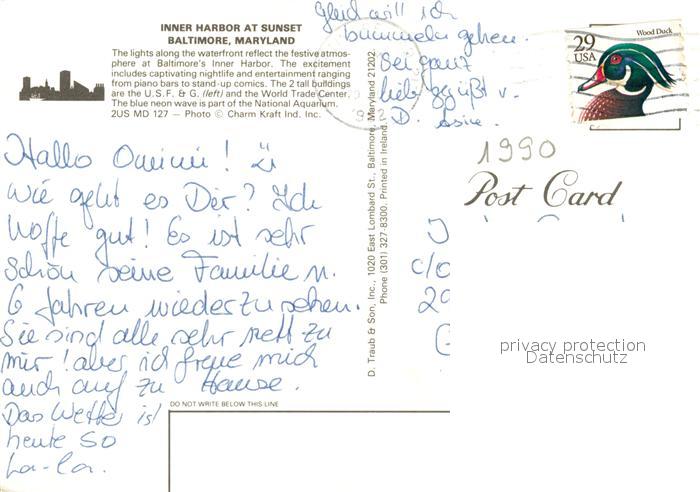 INNER HARBOR AT SUNSET
BALTIMORE, MARYLAND
The lights along the waterfront reflect the festive atmos-
phere at Baltimore's Inner Harbor. The excitement
includes captivating nightlife and entertainment ranging
from piano bars to stand-up comics. The 2 tall buildings
are the U.S.F. & G. (left) and the World Trade Center.
The blue neon wave is part of the National Aquarium.
2US MD 127 — Photo © Charm Kraft Ind. Inc.
Hallo Omimi!
Wie geht es Dir? Ich
hoffe gut! Es ist sehr
schön seine Familie n.
6 Jahren wiederzusehen.
Sie sind alle sehr nett zu
mir! aber ich freue mich
auch auf zu Hause.
Das Wetter ist
heute so
la-la.
Gleich will ich
bummeln gehen.
Sei ganz
lieb gegrüßt v.
D.
D. Traub & Son, Inc., 1020 East Lombard St., Baltimore, Maryland 21202.
Phone (301) 327-8300. Printed in Ireland.
29
USA
Wood Duck
1990
Post Card
c/o
privacy protection
Datenschutz
DO NOT WRITE BELOW THIS LINE